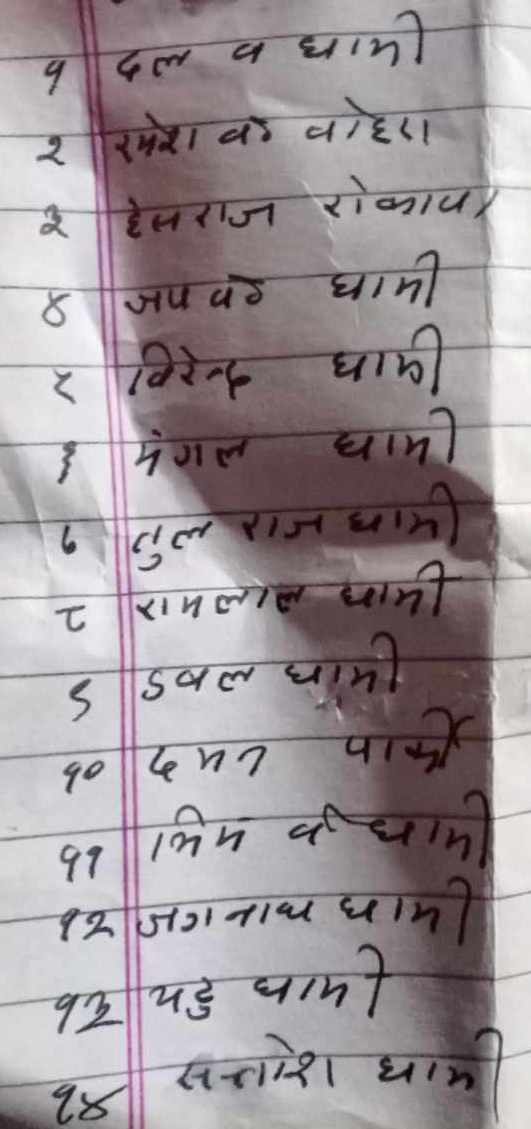 १ दल व धामी
२ रमेश वठ वोहरा
३ हेमराज रोकाया
४ जय वठ धामी
५ विरेन्द्र धामी
६ मंगल धामी
७ तुल राज धामी
८ रामलाल धामी
९ डवल धामी
१० दमन धामी
११ भिम व धामी
१२ जगनाथ धामी
१३ धामी
१४ सन्तोश धामी